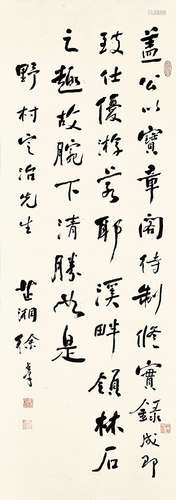 蓋公以寶章閣待制修實錄成即
致仕優游若耶溪畔領林石
之趣故腕下清勝如是
野村定治先生
芷湘徐